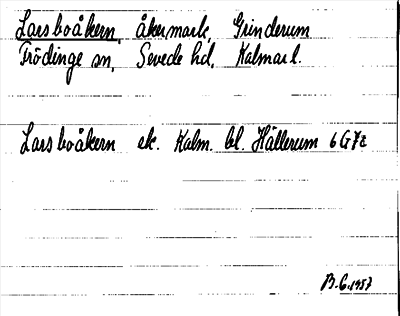 Larsboåkern, åkermark, Grinderum
Frödinge sn, Sevede hd, Kalmar l.
Larsboåkern ek. Kalm. bl. Hällerum 6G7e
B.G. 1957